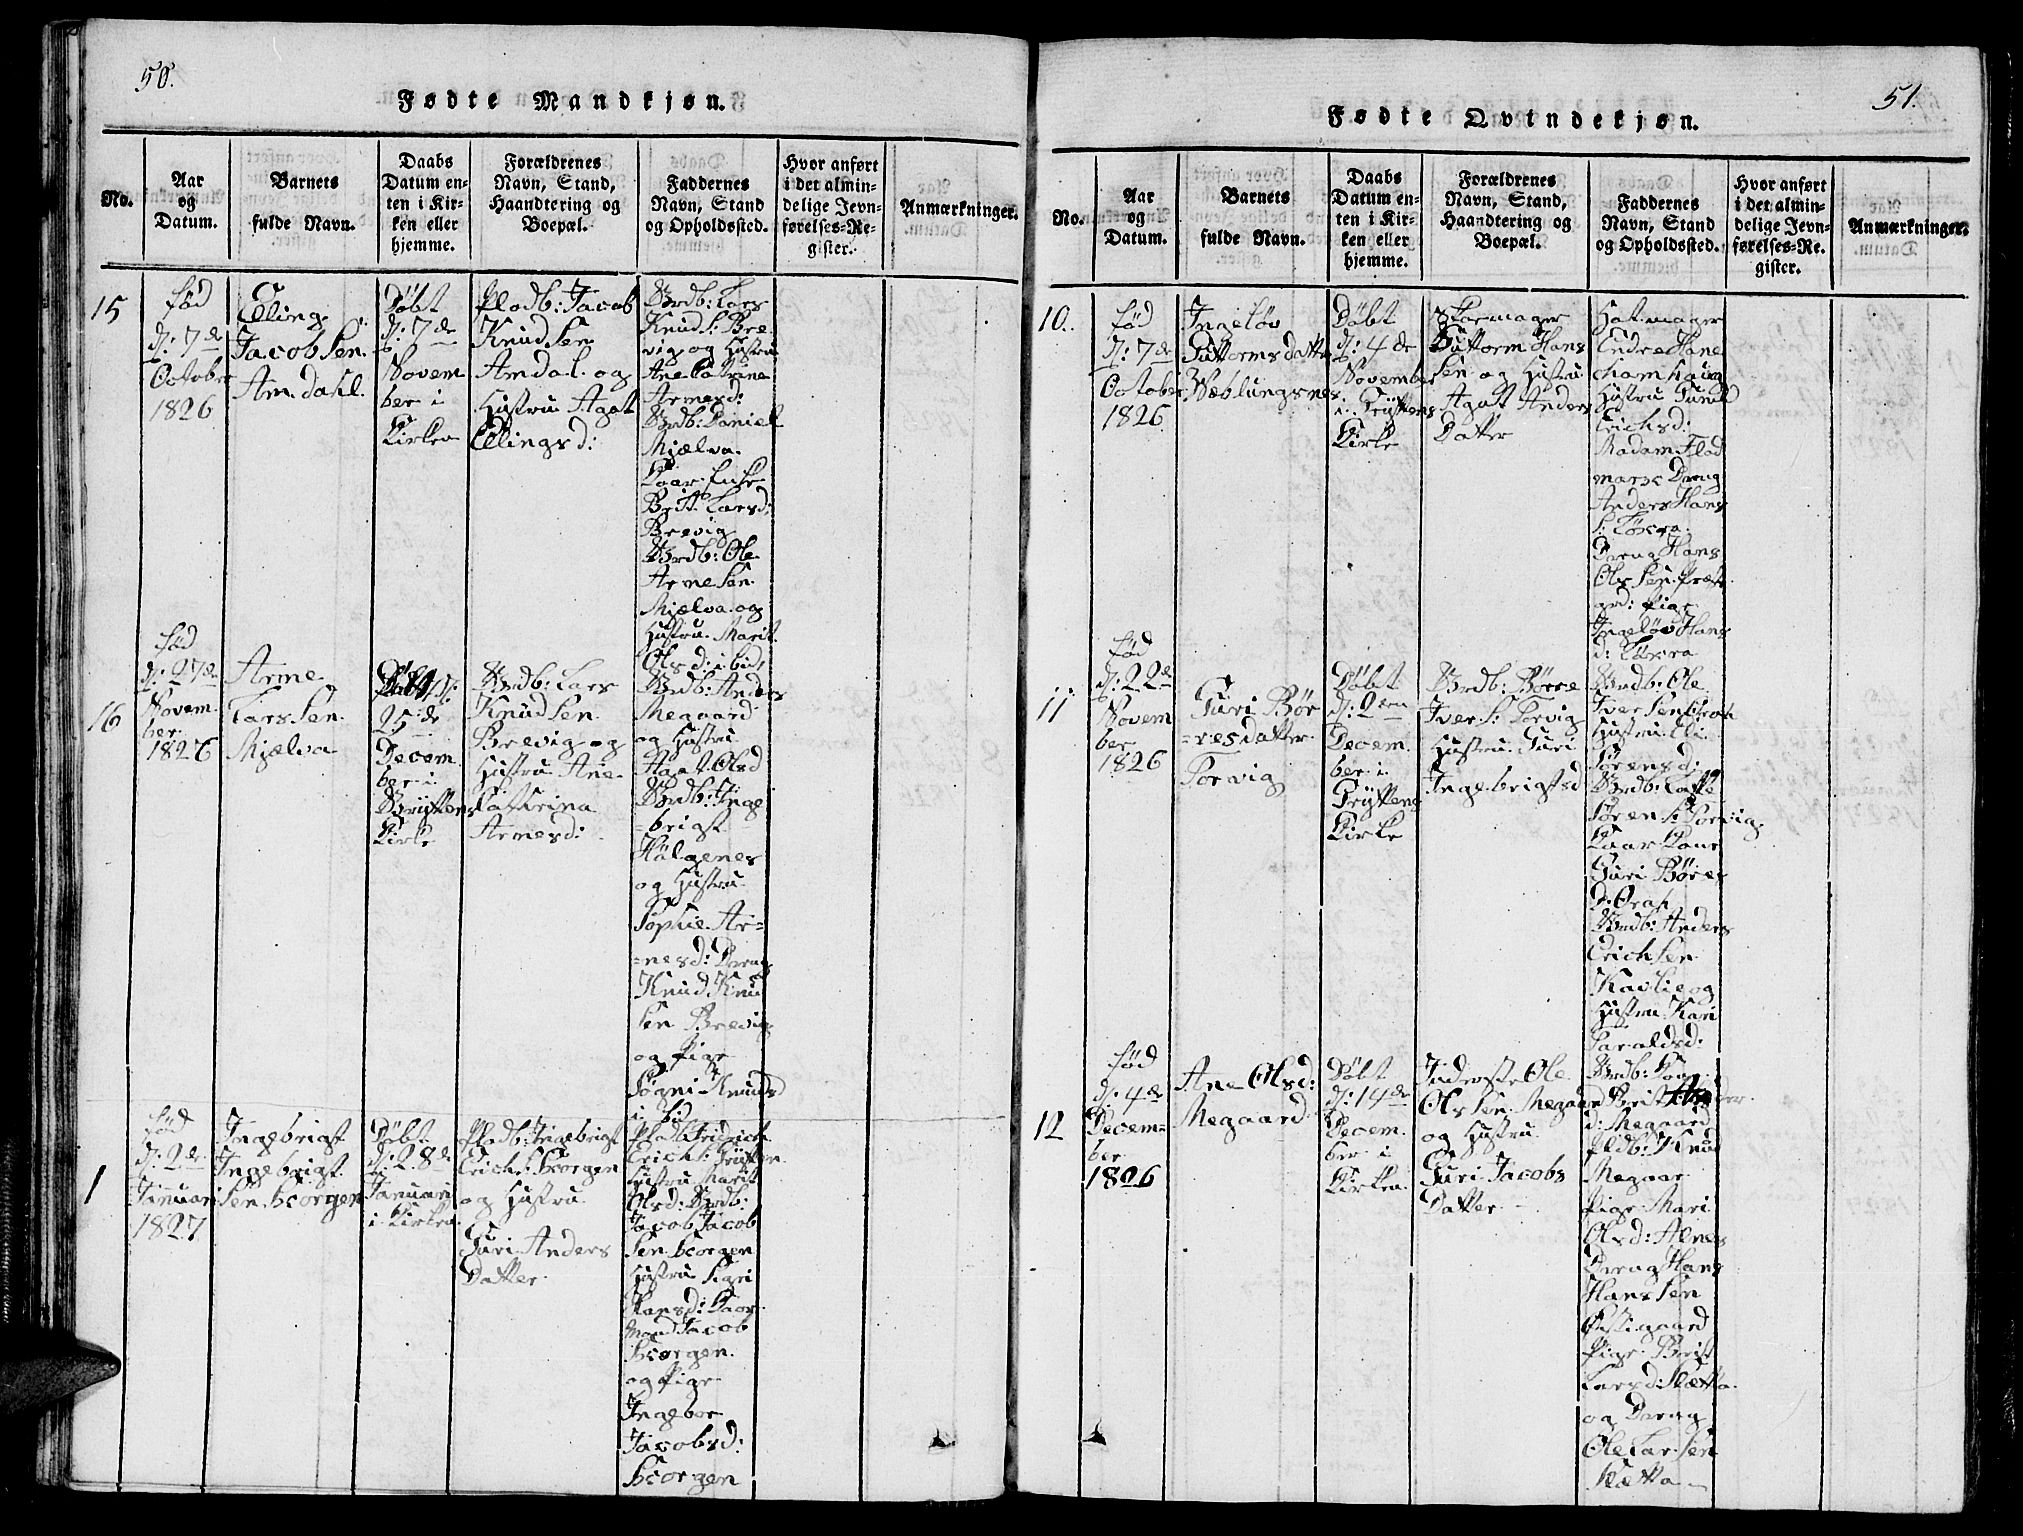 50.
Fødte Mandkjøn.
No.
Aar
og
Datum.
Barnets
fulde Navn.
Daabs
Datum en-
ten i Kir-
ken eller
hjemme.
Forældrenes
Navn, Stand,
Haandtering og
Boepæl.
Faddernes
Navn, Stand
og Opholdssted.
Hvor anført
i det almin-
delige Jevn-
førelses-Re-
gister.
Anmærkninger.
15
fød
d: 7de
October
1826
Elling
Jacobsen
Amdahl.
Døbt
d: 7de
Novem
ber i
Kirken
Pladb: Jacob
Knudsen
Amdal og
Hustru Agat
Ellingsd:
Brdb: Lars
Knuds: Bre
vig og Hustru
Ane Catrine
Arnesd:
Brdb: Daniel
Mjælva.
Britt Larsd:
Brevig
Brdb: Ole
Arnesen
Mjælva og
Hustru Marit
Olsd: ibid,
16
fød
d: 27de
Novem
ber
1826
Arne
Larssen
Mjælva
Døbt d:
25de
Decem
ber i
Kirke
Brdb: Lars
Knudsen
Brevig og
Hustru Ane
Cathrina
Arnesd:
Brdb: Anders
Megaard
og Hustru
Agat Olsd
Brdb: Inge
=brigt
og Hustru
Sophie Ar=
=nesd: Dreng
Knud Knud
sen Brevig
og Pige
Søgni Knuds
ibid
1
fød
d: 2de
Januari
1827
Ingebrigt
Ingebrigt
sen Hoorgen
Døbt
d: 28de
Januari
i Kirken
Pladb: Ingebrigt
Erichs: Hoorgen
og Hustru
Guri Anders
Datter
Pladb: Fridrich
Erichs: Grytten
Hustru Marit
Olsd: Brdb:
Jacob Jacob
sen Hoorgen
Hustru Sigri
Hansd: Kaar
mand Jacob
Hoorgen
og Pige
Ingebor
Jacobsd:
Hoorgen
51.
Fødte Qvindekjøn.
No.
Aar
og
Datum.
Barnets
fulde Navn.
Daabs
Datum en-
ten i Kir-
ken eller
hjemme.
Forældrenes
Navn, Stand,
Haandtering og
Boepæl.
Faddernes
Navn, Stand
og Opholdssted.
Hvor anført
i det almin-
delige Jevn-
førelses-Re-
gister.
Anmærkninger.
10.
fød
d: 7de
October
1826
Ingeløv
Guttormsdatter
Væblungsnes
Døbt
d: 4de
November
i Gryttens
Kirke
Skoemager
Guttorm Hans
sen og Hustru
Agat Anders
Datter
Hatmager
Endre Hane
Hustru Gunild
Erichsd:
Madam Flad
mark Dreng
Anders Hans
s:
Dreng Hans
Olssen Præst
grd: Pige
Ingeløv Hans
d:
11
fød
d: 22de
Novem
ber
1826
Guri Bør
=resdatter
Torvig
Døbt
d: 2den
Decem
ber i
Gryttens
Kirke
Brdb: Børre
Ivers: Torvig
Hustru Guri
Ingebrigtsd
Brdb: Ole
Iversen
Hustru Eli
Sørensd:
Brdb:
Søren s: Torvig
Guri Børes
d:
Brdb: Anders
Erichsen
Kavlie og
Hustru Kari
Haraldsd:
12
fød
d: 4de
Decem=
ber
1826
Ane Olsd:
Megaard
Døbt
d: 14de
Decem
ber i
Kirken
Inderste Ole
Olssen Megaard
og Hustru
Guri Jacobs
Datter
Brdb:
Brit Ander
d: Megaard
Pldb: Knud
Megaar
Pige Mari
Olsd: Alnes
Dreng Hans
Hanssen
Østigaard
Pige Brit
Larsd: Sletta
og Dreng
Ole Larsen
Sletta